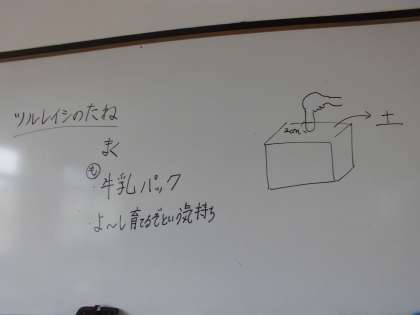 ツルレイシのたね
まく
も
・牛乳パック
・よ～し育てるぞという気持ち
2cm
土